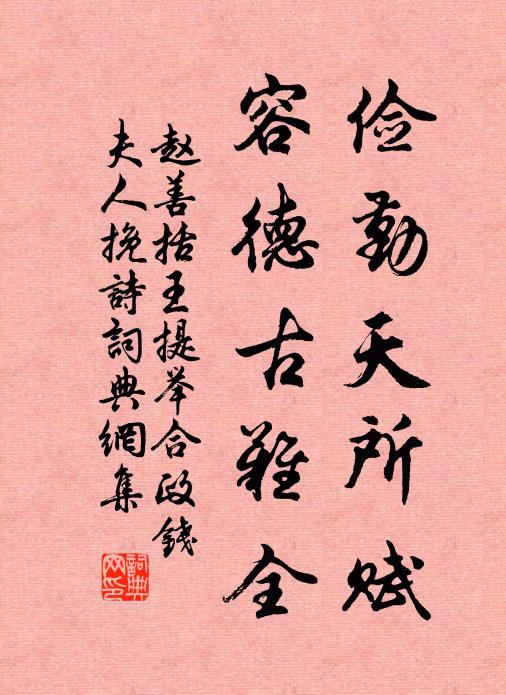 俭勤天所赋
容德古难全
赵善括王提举合政錢
夫人挽詩詞典網集
詞典网印